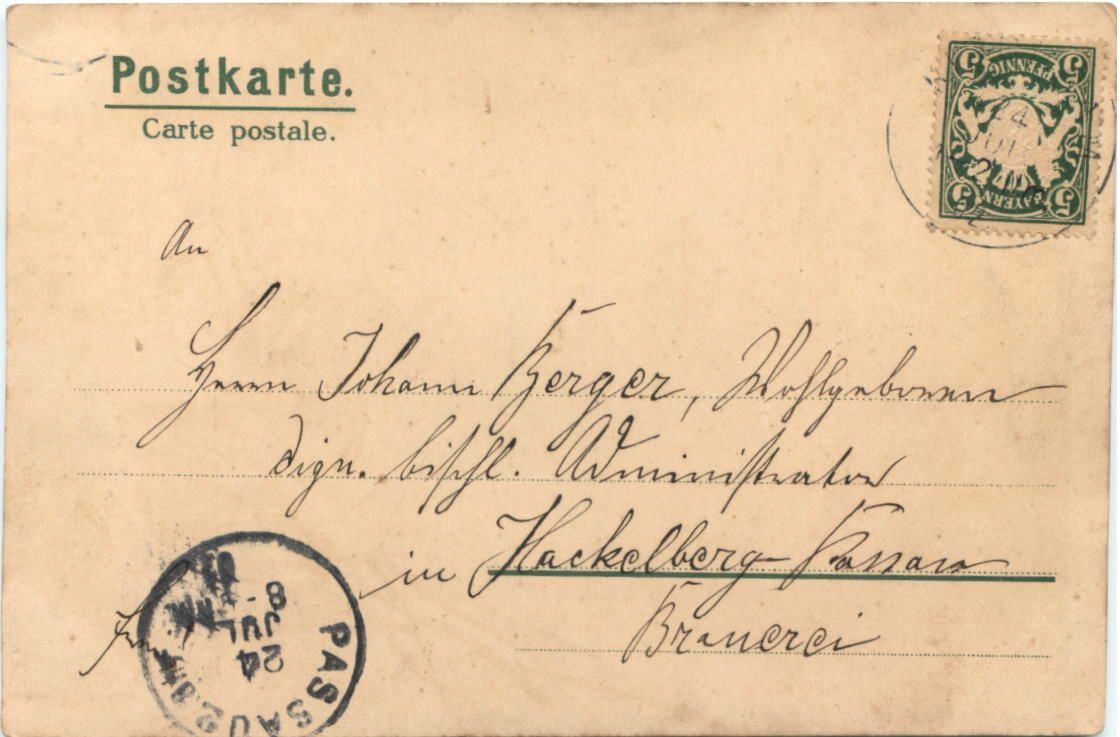 Postkarte.
Carte postale.
5 PFENNIG 5
24
JUL
2
5 BAYERN 5
An
Herrn Johann Berger, Wohlgeboren
bischl. Administrator
in Hackelberg-Passau
Brauerei
PASSAU 2.
24
JUL
8